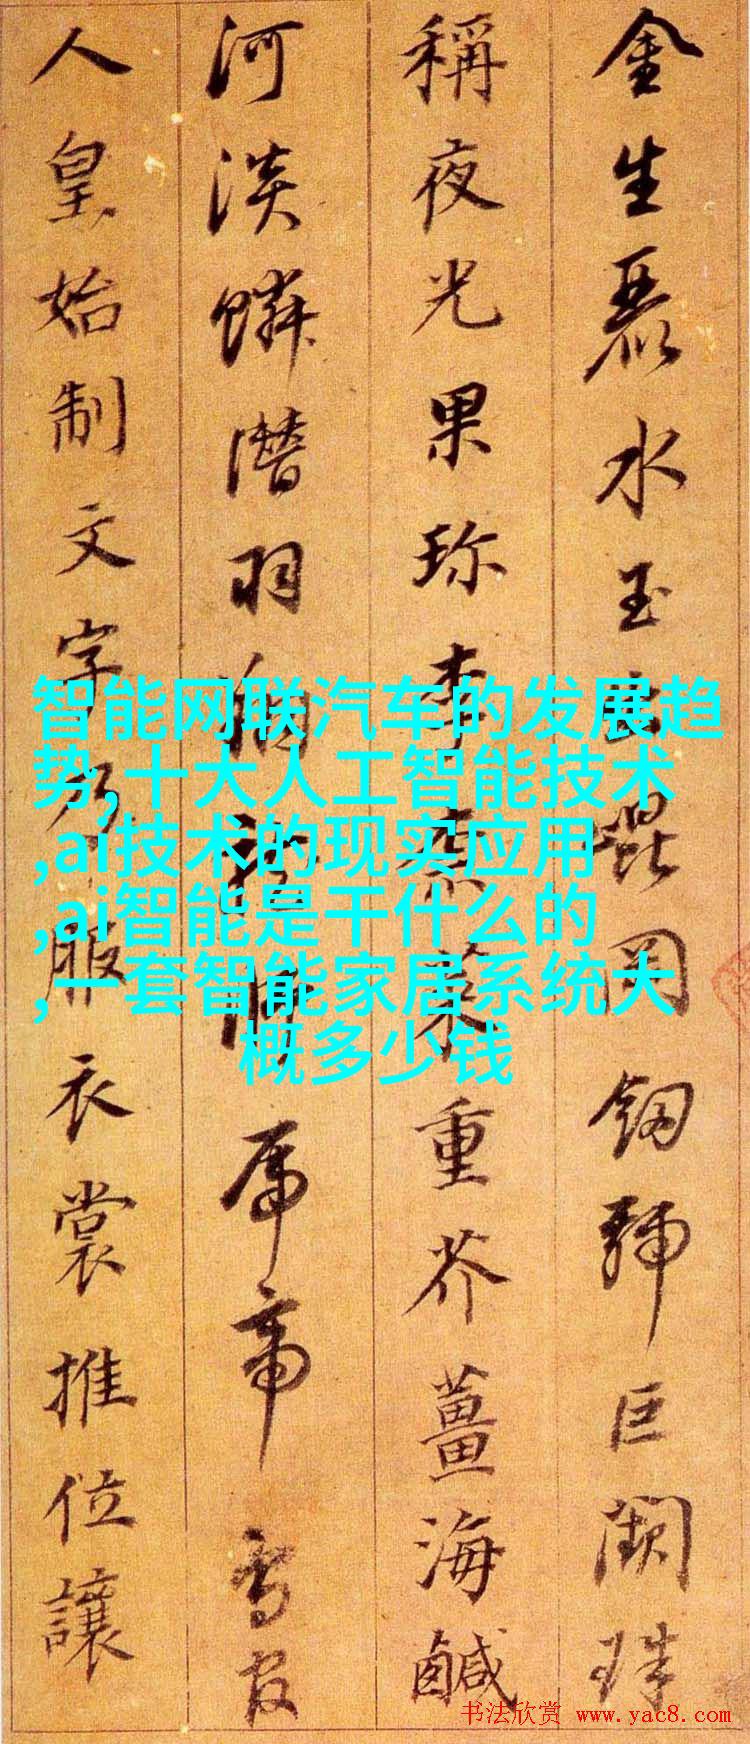 金生麗水玉出崐岡劒號巨闕珠
稱夜光果珎李柰菜重芥薑海鹹
河淡鱗潛羽翔龍師帝鳥官
人皇始制文字乃服衣裳推位讓
智能网联汽车的发展趋
势,十大人工智能技术
,ai技术的现实应用
,ai智能是干什么的
,一套智能家居系统大
概多少钱
书法欣赏 www.yac8.com